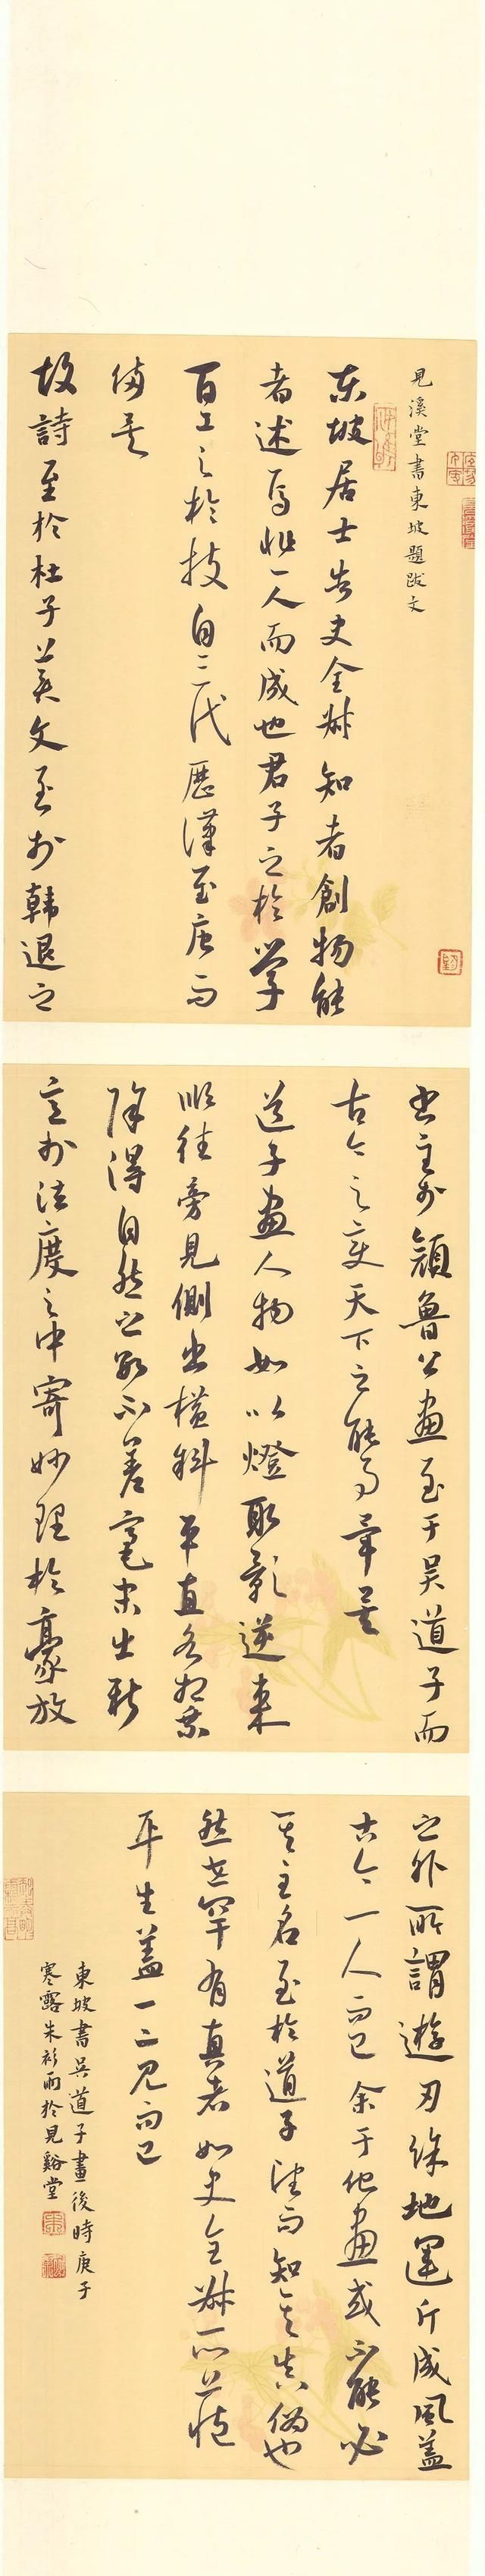 見溪堂書東坡題跋文
東坡居士告史全叔知者創物能
者述焉非一人而成也君子之於學
百工之於技自三代歷漢至唐而
備矣
故詩至於杜子美文至於韓退之
書至於顏魯公畫至于吳道子而
古今之變天下之能事畢矣
道子畫人物如以燈取影逆來
順往旁見側出橫斜平直各相乘
除得自然之數不差毫末出新
意於法度之中寄妙理於豪放
之外所謂遊刃餘地運斤成風蓋
古今一人而已余于他畫或不能必
其主名至於道子望而知其真偽也
然世罕有真者如史全叔所藏
平生蓋一二見而已
東坡書吳道子畫後時庚子
寒露朱彩雨於見谿堂